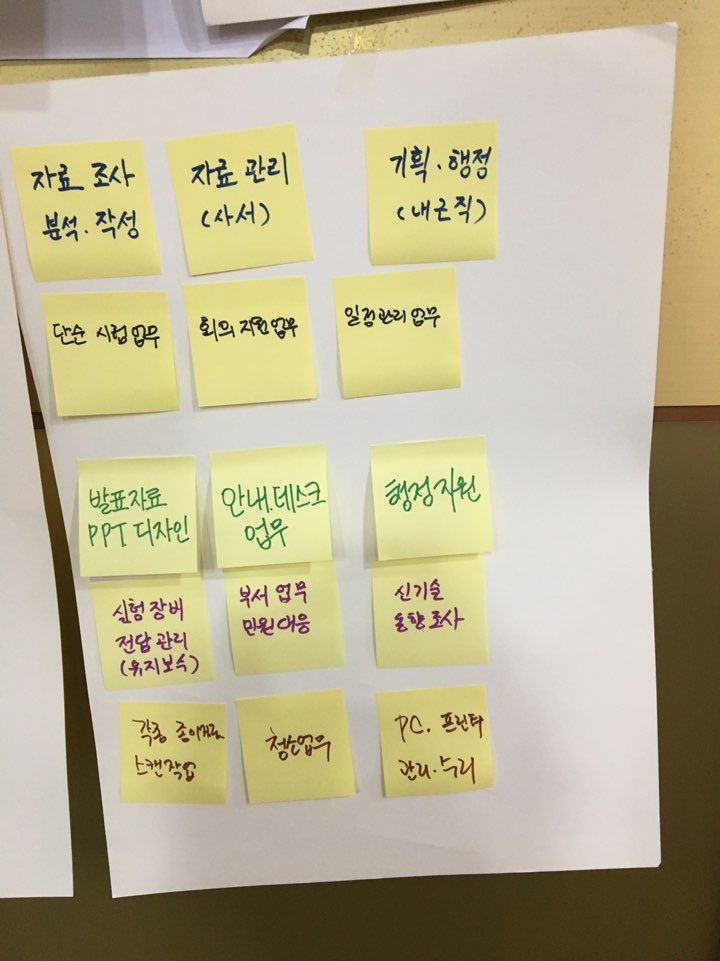 자료 조사
분석·작성
자료 관리
(사서)
기획·행정
(내근직)
단순 시험업무
회의 지원 업무
일정관리 업무
발표자료
PPT 디자인
안내.데스크
업무
행정지원
실험 장비
전담 관리
(유지보수)
부서 업무
민원 대응
신기술
동향 조사
각종 종이자료
스캔작업
청소업무
PC. 프린터
관리·수리